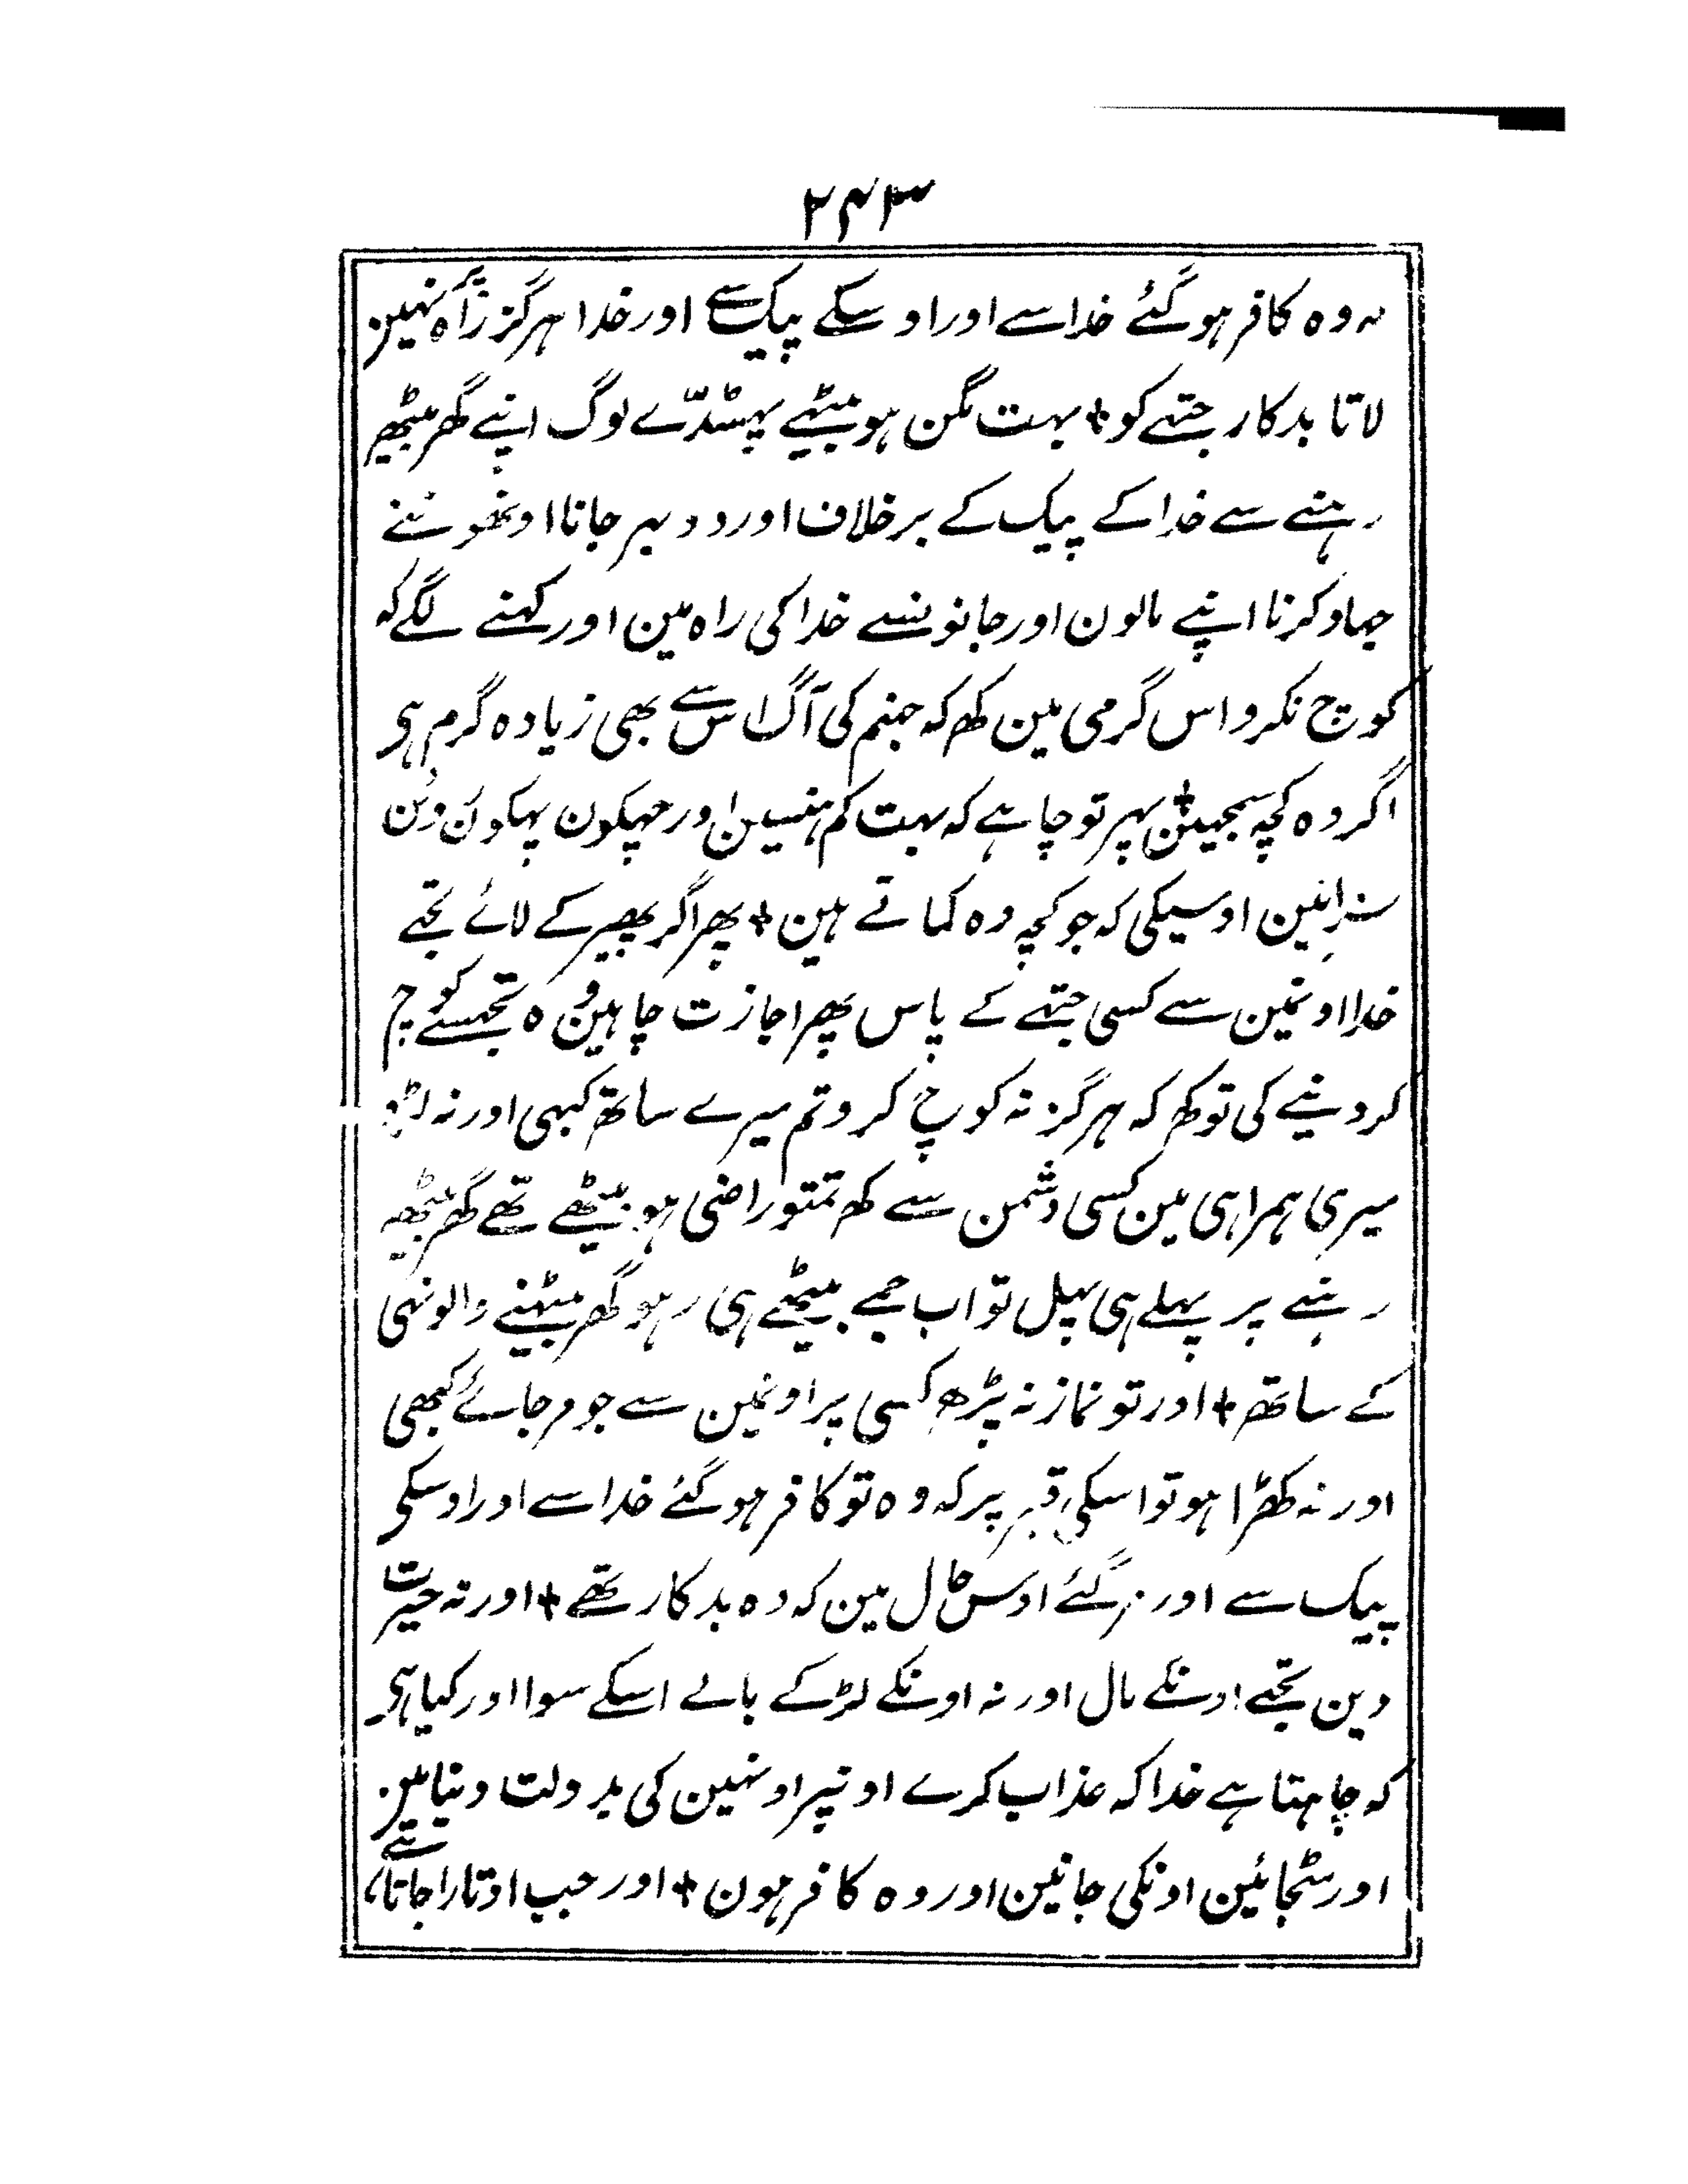 ۲۴۳
کہ وہ کافر ہوگئے خدا سے اور اوسکے پیک سے اور خدا ہرگز راہ پر نہین
لاتا بدکار جتھے کو + بہت مگن ہو بیٹھے پہسڈّے لوگ اپنے گھر بیٹھہ
رہنے سے خدا کے پیک کے برخلاف اور دوبہر جانا اونھونے
جہاد کرنا اپنے مالون اور جانونسے خدا کی راہ مین اور کہنے لگے کہ
کوچ نکرو اس گرمی مین کھ کہ جہنم کی آگ اس سے بھی زیادہ گرم ہی
اگر وہ کچہ سمجہین + پہر تو چاہے کہ بہت کم ہنسین اور پہکون پہکون روئن
سزا مین اوسیکی کہ جو کچہ وہ کماتے ہین + پھر اگر پھیر کے لائے تجے
خدا اونمین سے کسی جتھے کے پاس پھر اجازت چاہین وہ تجسے کوچ
کر دینے کی تو کھ کہ ہرگز نہ کوچ کرو تم میرے ساتھ کبہی اور نہ لڑو
میری ہمراہی مین کسی دشمن سے کھ تمتو راضی ہو بیٹھے تھے گھر بیٹھہ
رہنے پر پہلے ہی پہل تو اب جمے بیٹھے ہی رہو گھر بیٹہنے والونہی
کے ساتھ + اور تو نماز نہ پڑھ کسی پر اونمین سے جو مرجائے کبھی
اور نہ کھڑا ہو تو اسکی قبر پر کہ وہ تو کافر ہوگئے خدا سے اور اوسکی
پیک سے اور مرگئے اوس حال مین کہ وہ بدکار تھے + اور نہ حیرت
دین تجھے اونکے مال اور نہ اونکے لڑکے بالے اسکے سوا اور کیا ہی
کہ چاہتا ہے خدا کہ عذاب کرے اونپر اونہین کی بدولت دنیا مین
اور سٹجائین اونکی جانین اور وہ کافر ہون + اور جب اوتارا جاتا